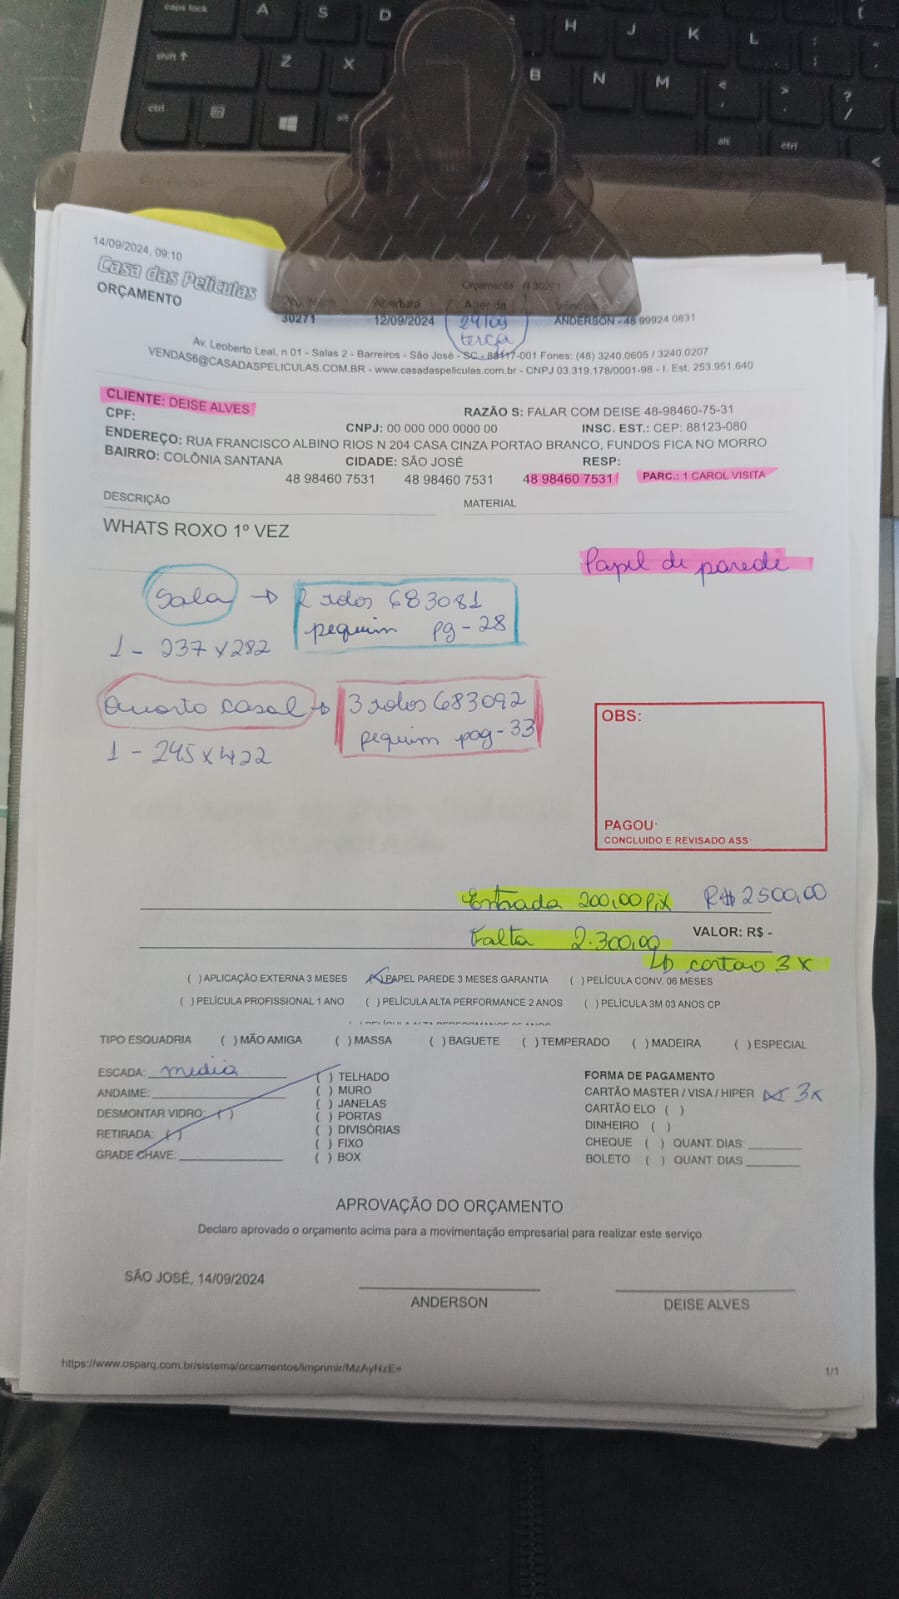 caps lock
A S D H J K L
shift Z X B N M < > ? /
ctrl alt alt ctrl <
14/09/2024, 09:10
Casa das Peliculas
ORÇAMENTO
Orçamento N 30271
Abertura Agenda
30271 12/09/2024 24/09 ANDERSON - 48 99924 0831
terça
Av. Leoberto Leal, n 01 - Salas 2 - Barreiros - São José - SC - 88117-001 Fones: (48) 3240.0605 / 3240.0207
VENDAS6@CASADASPELICULAS.COM.BR - www.casadaspeliculas.com.br - CNPJ 03.319.178/0001-98 - I. Est. 253.951.640
CLIENTE: DEISE ALVES RAZÃO S: FALAR COM DEISE 48-98460-75-31
CPF: CNPJ: 00 000 000 0000 00 INSC. EST.: CEP: 88123-080
ENDEREÇO: RUA FRANCISCO ALBINO RIOS N 204 CASA CINZA PORTAO BRANCO, FUNDOS FICA NO MORRO
BAIRRO: COLÔNIA SANTANA CIDADE: SÃO JOSÉ RESP:
48 98460 7531 48 98460 7531 48 98460 7531 PARC.: 1 CAROL VISITA
DESCRIÇÃO MATERIAL
WHATS ROXO 1º VEZ
Papel de parede
Sala → 2 rolos 683081
pequim pg - 28
1 - 237 x 282
Quarto casal → 3 rolos 683092
pequim pag - 33
1 - 245 x 422
OBS:
PAGOU:
CONCLUIDO E REVISADO ASS:
Entrada 200,00 Pix R$ 2500,00
Falta 2.300,00 VALOR: R$ -
cartão 3x
( ) APLICAÇÃO EXTERNA 3 MESES (X) PAPEL PAREDE 3 MESES GARANTIA ( ) PELÍCULA CONV. 06 MESES
( ) PELÍCULA PROFISSIONAL 1 ANO ( ) PELÍCULA ALTA PERFORMANCE 2 ANOS ( ) PELÍCULA 3M 03 ANOS CP
TIPO ESQUADRIA ( ) MÃO AMIGA ( ) MASSA ( ) BAGUETE ( ) TEMPERADO ( ) MADEIRA ( ) ESPECIAL
ESCADA: media ( ) TELHADO FORMA DE PAGAMENTO
ANDAIME: ( ) MURO CARTÃO MASTER / VISA / HIPER (X) 3x
DESMONTAR VIDRO: ( ) ( ) JANELAS CARTÃO ELO ( )
RETIRADA: ( ) ( ) PORTAS DINHEIRO ( )
( ) DIVISÓRIAS CHEQUE ( ) QUANT. DIAS:
GRADE CHAVE: ( ) FIXO BOLETO ( ) QUANT. DIAS
( ) BOX
APROVAÇÃO DO ORÇAMENTO
Declaro aprovado o orçamento acima para a movimentação empresarial para realizar este serviço
SÃO JOSÉ, 14/09/2024
ANDERSON DEISE ALVES
https://www.osparq.com.br/sistema/orcamentos/imprimir/MzAyNzE= 1/1